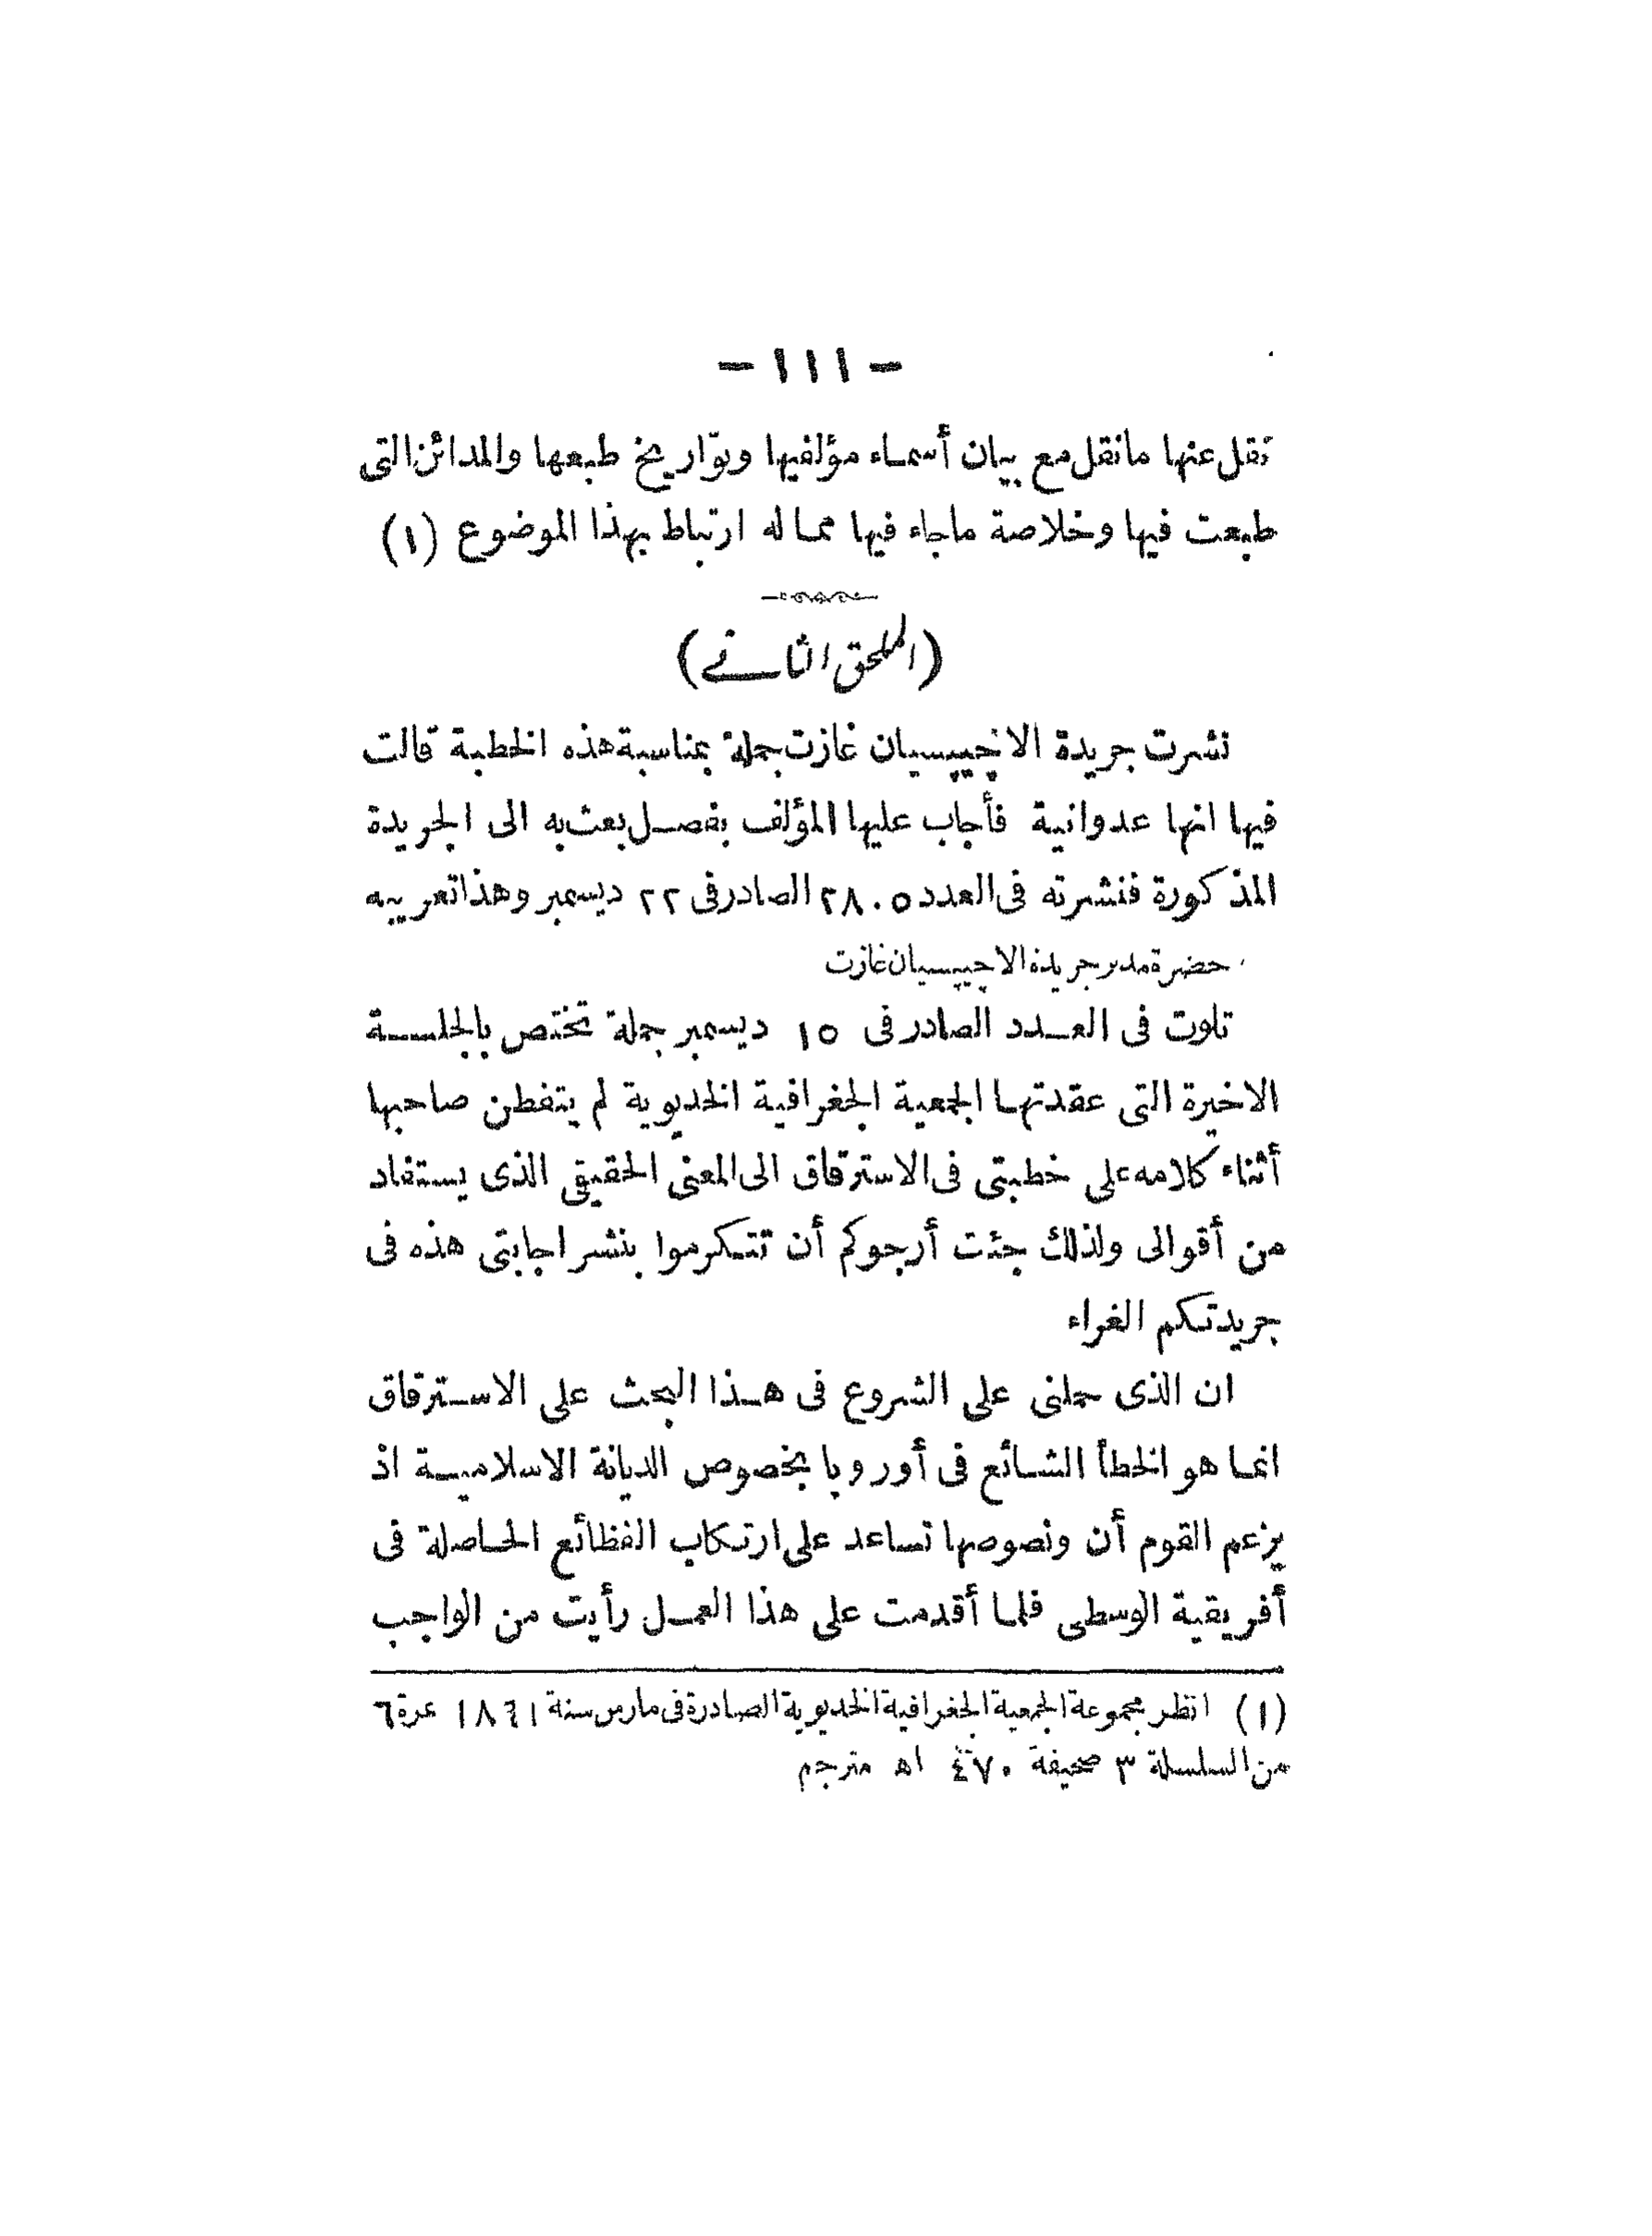 - ١١١ -
نقل عنها ما نقل مع بيان أسماء مؤلفيها وتواريخ طبعها والمدائن التى
طبعت فيها وخلاصة ماجاء فيها مما له ارتباط بهذا الموضوع (١)
(الملحق الثاني)
نشرت جريدة الاچيپسيان غازت جملة بمناسبة هذه الخطبة قالت
فيها انها عدوانية فأجاب عليها المؤلف بفصل بعث به الى الجريدة
المذكورة فنشرته فى العدد ٢٨٠٥ الصادر فى ٢٢ ديسمبر وهذا تعريبه
حضرة مدير جريدة الاچيپسيان غازت
تلوت فى العدد الصادر فى ١٥ ديسمبر جملة تختص بالجلسة
الاخيرة التى عقدتها الجمعية الجغرافية الخديوية لم يتفطن صاحبها
أثناء كلامه على خطبتى فى الاسترقاق الى المعنى الحقيقى الذى يستفاد
من أقوالى ولذلك جئت أرجوكم أن تتكرموا بنشر اجابتى هذه فى
جريدتكم الغراء
ان الذى حملنى على الشروع فى هذا البحث على الاسترقاق
انما هو الخطأ الشائع فى أوروپا بخصوص الديانة الاسلامية اذ
يزعم القوم أن ونصوصها تساعد على ارتكاب الفظائع الحاصلة فى
أفريقية الوسطى فلما أقدمت على هذا العمل رأيت من الواجب
(١) انظر مجموعة الجمعية الجغرافية الخديوية الصادرة فى مارس سنة نمرة ٦
من السلسلة ٣ صحيفة ٤٧٠ اه مترجم